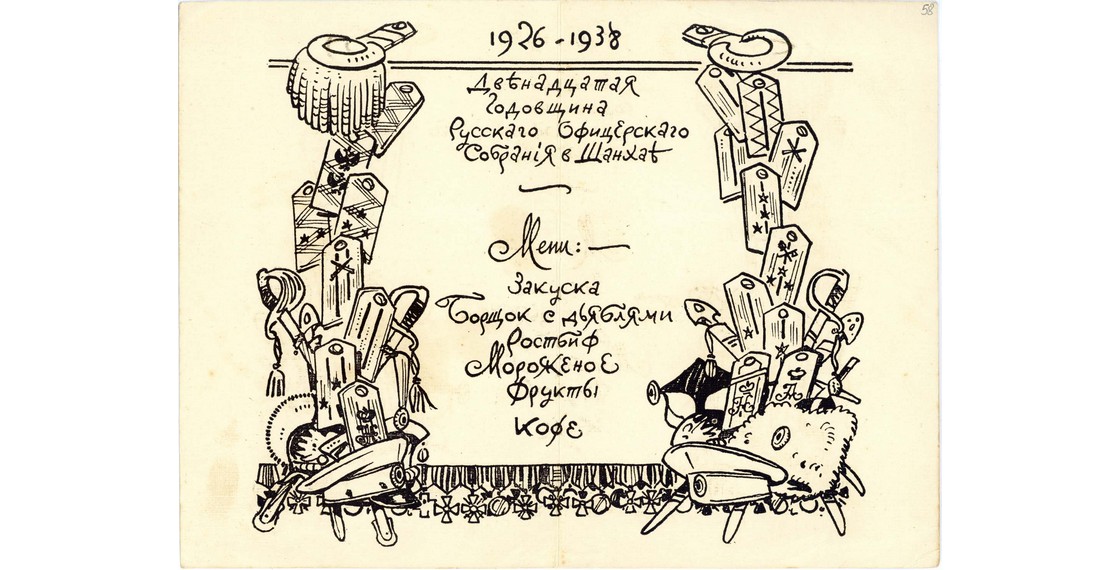 58
1926-1938
Двѣнадцатая
Годовщина
Русскаго Офицерскаго
Собранія в Шанхаѣ
Меню: —
Закуска
Борщок с дьяблями
Ростбиф
Мороженое
Фрукты
Кофе